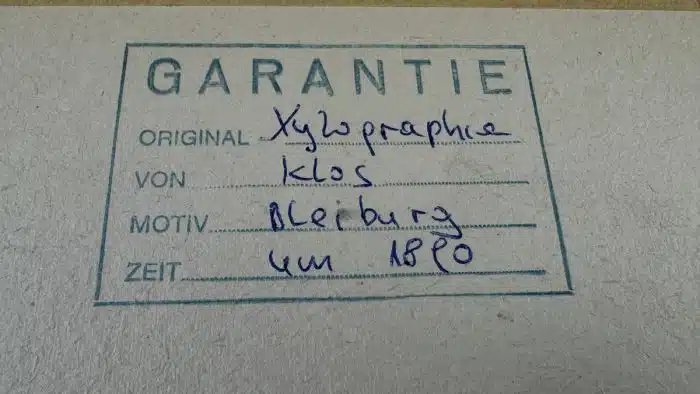 GARANTIE
ORIGINAL Xylographie
VON Klos
MOTIV Bleiburg
ZEIT um 1890